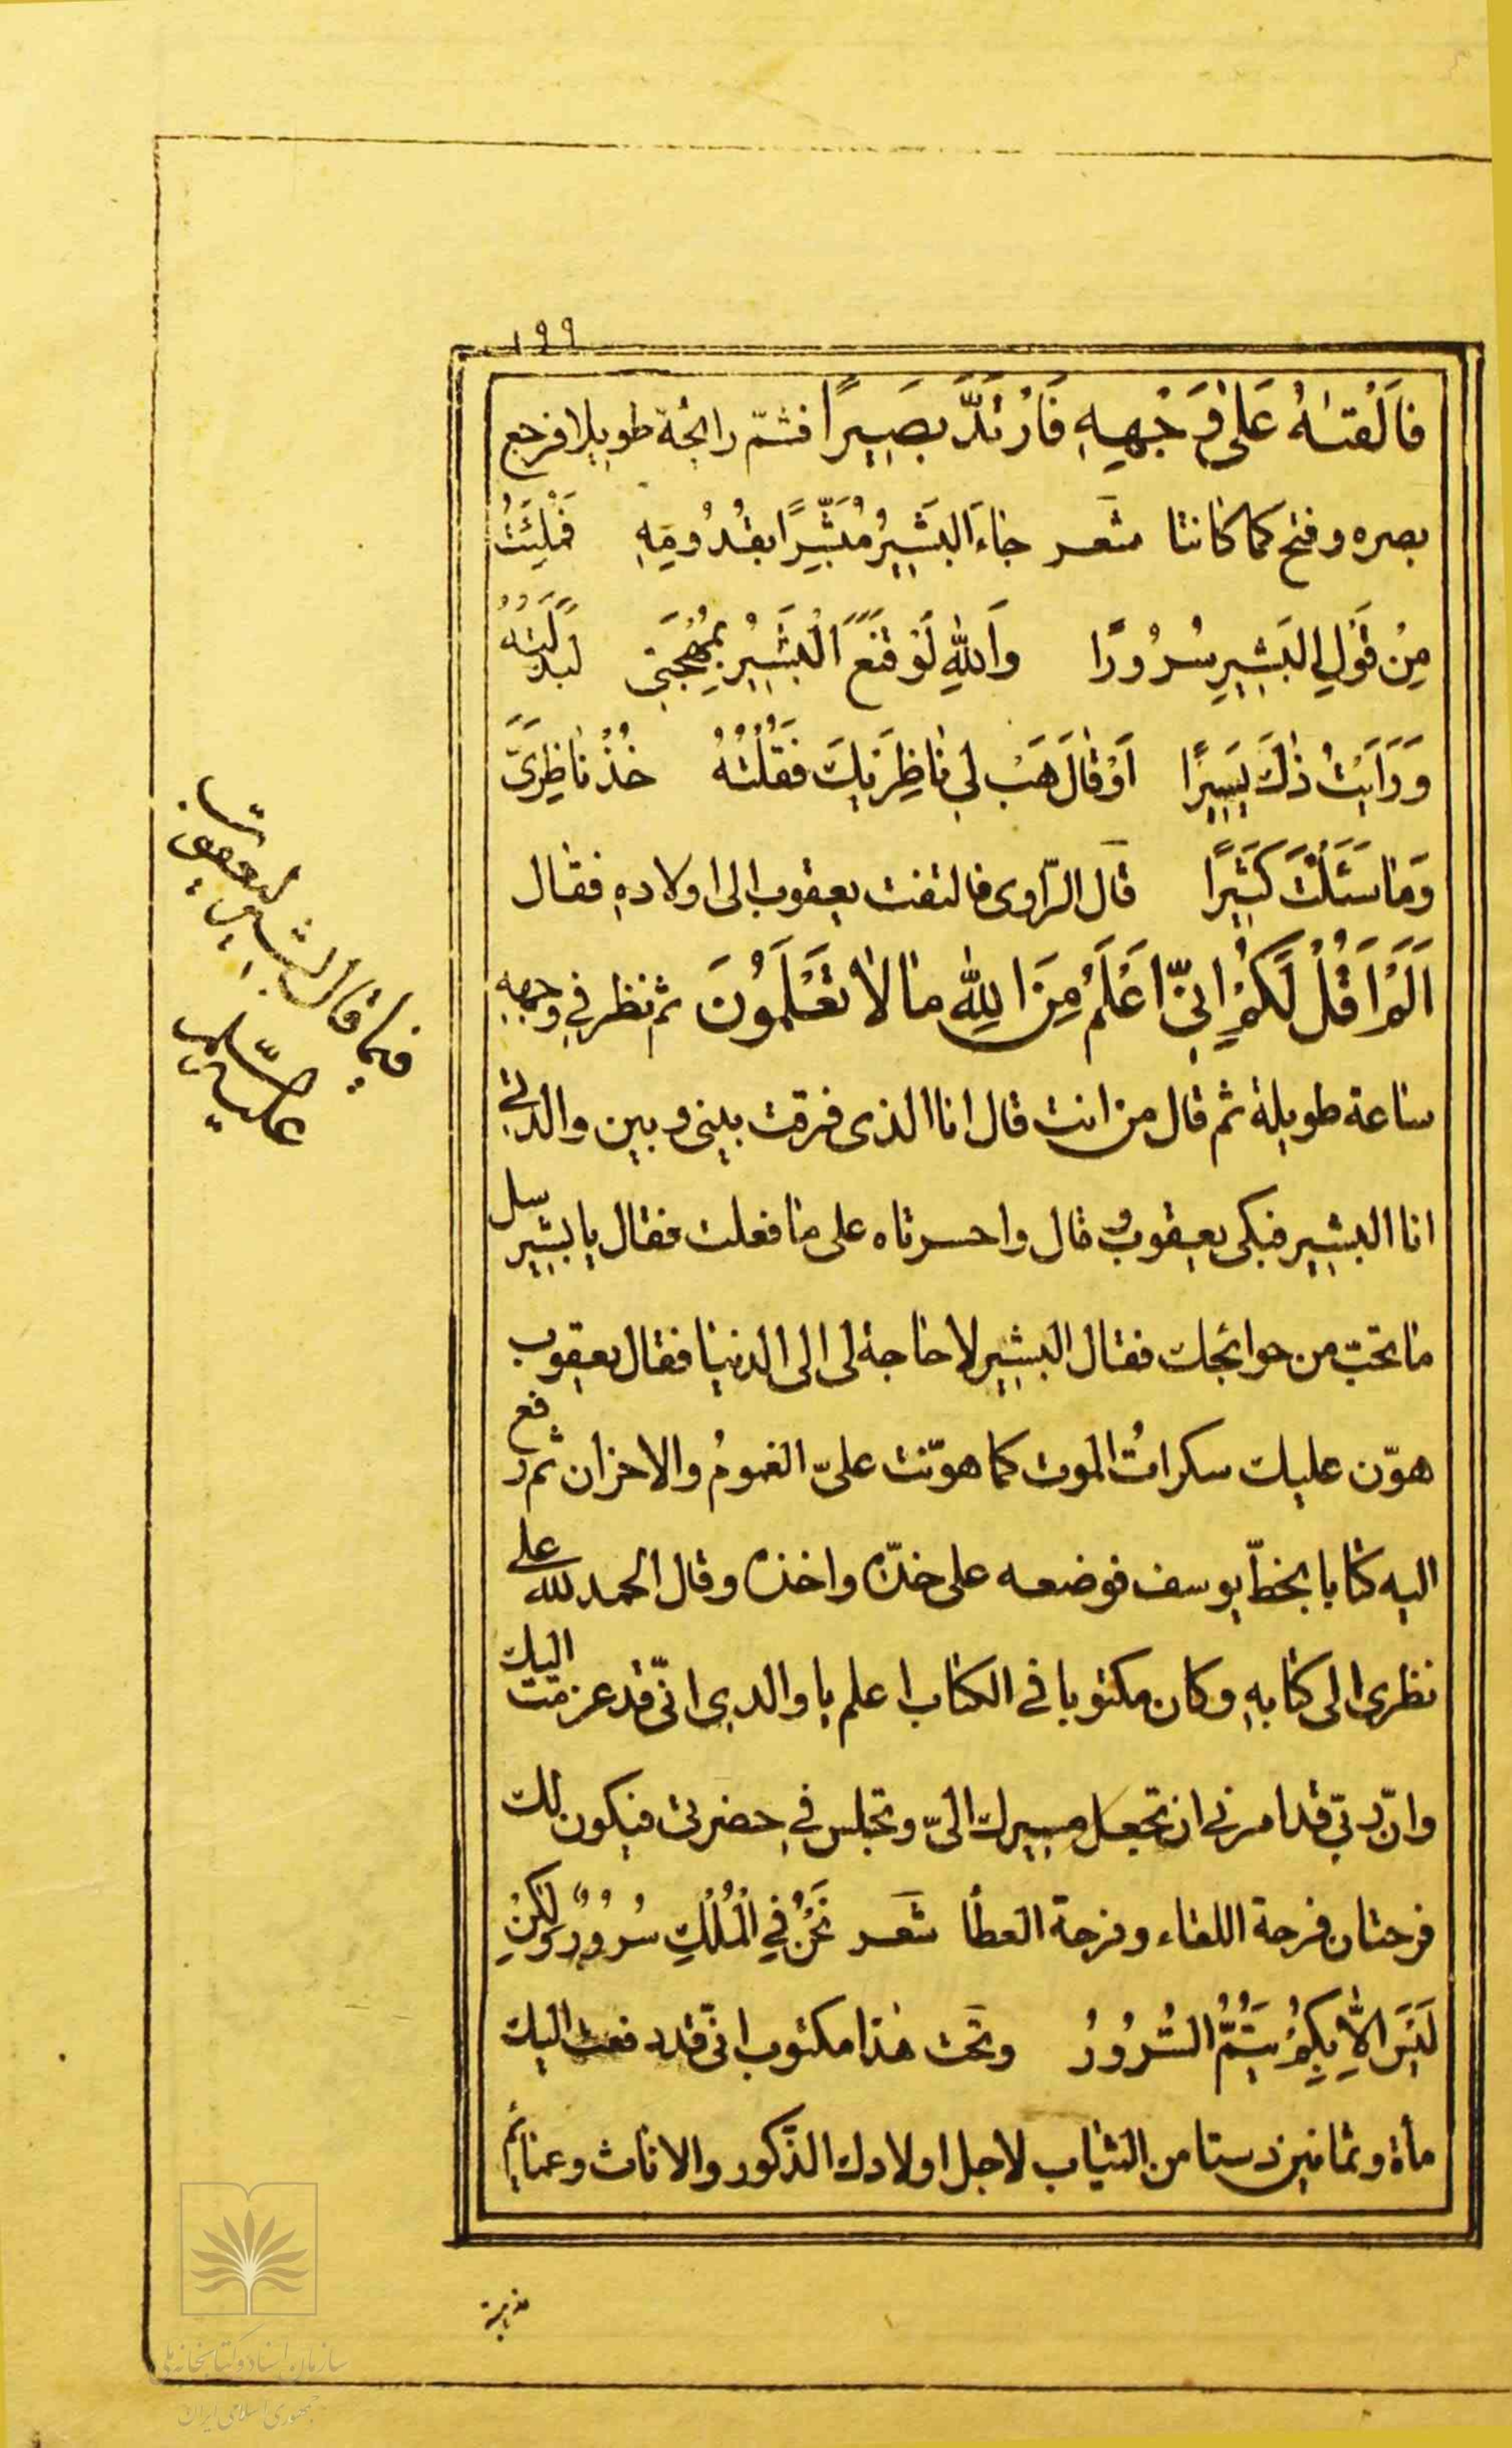 ١٩٩
فَاَلْقٰتهُ عَلىٰ وَجْهِهِ فَارْتَدَّ بَصِيرًا فشمّ رائحة طويلا فرجع
بصره وفتح كما كانتا شعر جاءَ البَشِيرُ مُبَشِّرًا بقُدُومِهِ فَمُلِئْتُ
مِنْ قَولِ البَشِيرِ سُرُورًا وَاللهِ لَوْ قَنَعَ الْبَشِيرُ بِمُهْجَتِى لبَذَلْتُهُ
وَرَاَيْتُ ذٰلَكَ يَسِيرًا اَوْ قالَ هَبْ لِى ناظِرَيْكَ فَقُلْتُهُ خُذْ ناظِرَىَّ
وَمٰا سَئَلْتَ كَثِيرًا قال الرّاوى فالتفت يعقوب الى اولاده فقال
اَلَمْ اَقُلْ لَكُمْ اِنّى اَعْلَمُ مِنَ اللهِ مٰا لاٰ تَعْلَمُونَ ثم نظر فى وجهه
ساعة طويلة ثم قال من انت قال انا الذى فرقت بينى وبين والدتى
انا البشير فبكى يعقوب و قال واحسرتاه على ما فعلت فقال يا بشير سل
ما تحبّ من حوائجك فقال البشير لا حاجة لى الى الدنيا فقال يعقوب
هوّن عليك سكراتُ الموت كما هوّنت علىّ الغمومُ والاحزان ثم رفع
اليه كتابا بخطّ يوسف فوضعه على خدّه واخذه وقال الحمد لله على
نظرى الى كتابهِ وكان مكتوبا فى الكتاب اعلم يا والدى انّى قد عزمت اليك
وانّ ربّى قد امرنى ان تجعل مسيرك الىّ وتجلس فى حضرتى فيكون لك
فرحتان فرحة اللقاء وفرحة العطأ شعر نَحْنُ فِي الْمُلْكِ سُرُورٌ وَلٰكِنْ
لَيْسَ اِلاّ بِكُمْ يَتِمُّ السُّرُورُ وتحت هذا مكتوب انّى قد دفعت اليك
مأة وثمانين دستا من الثياب لاجل اولادك الذّكور والاناث وعمائم
فيما قال البشير ليعقوب
عليه السّلام
سازمان اسناد و کتابخانه ملی
جمهوری اسلامی ایران